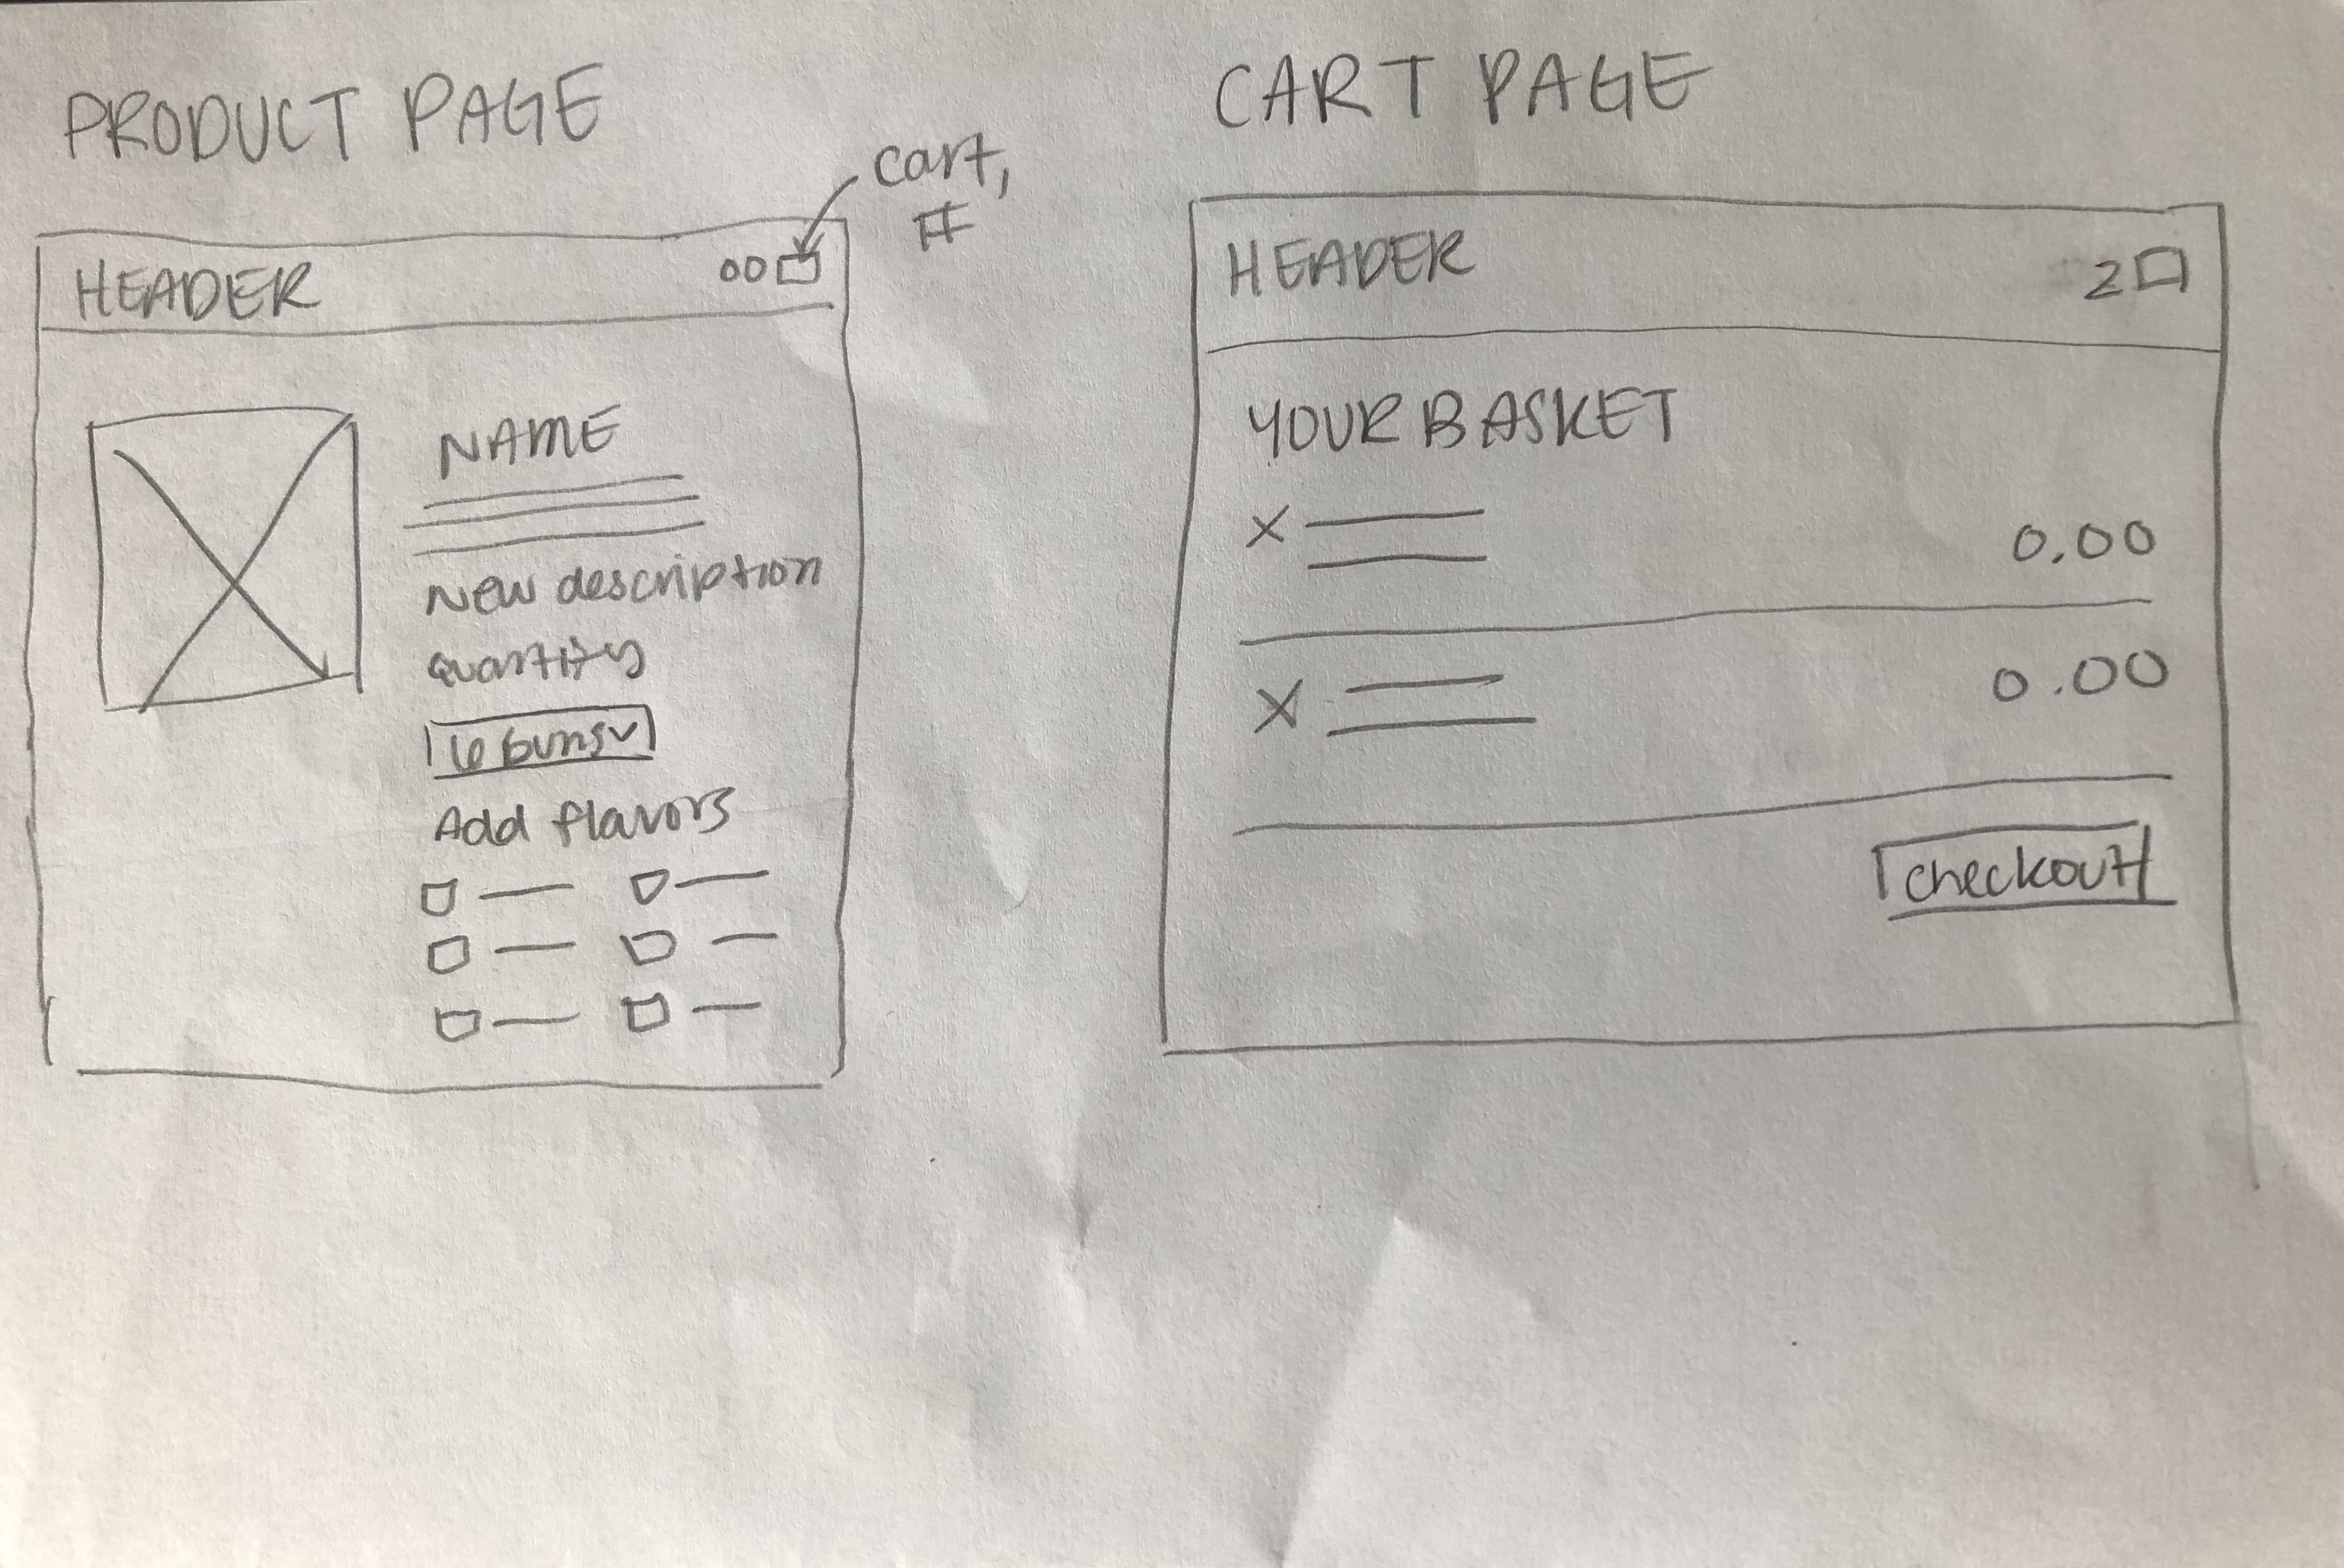 PRODUCT PAGE
cart,
#
HEADER
00
NAME
New description
quantity
6 buns
Add flavors
CART PAGE
HEADER
2
YOUR BASKET
X
0.00
X
0.00
checkout